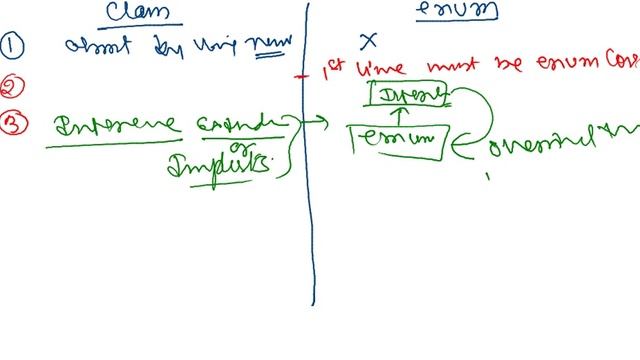 Class
enum
① object by using new
X
② 1st line must be enum Con
③ Inheritance extends
or
Implements
Interf
enum
override